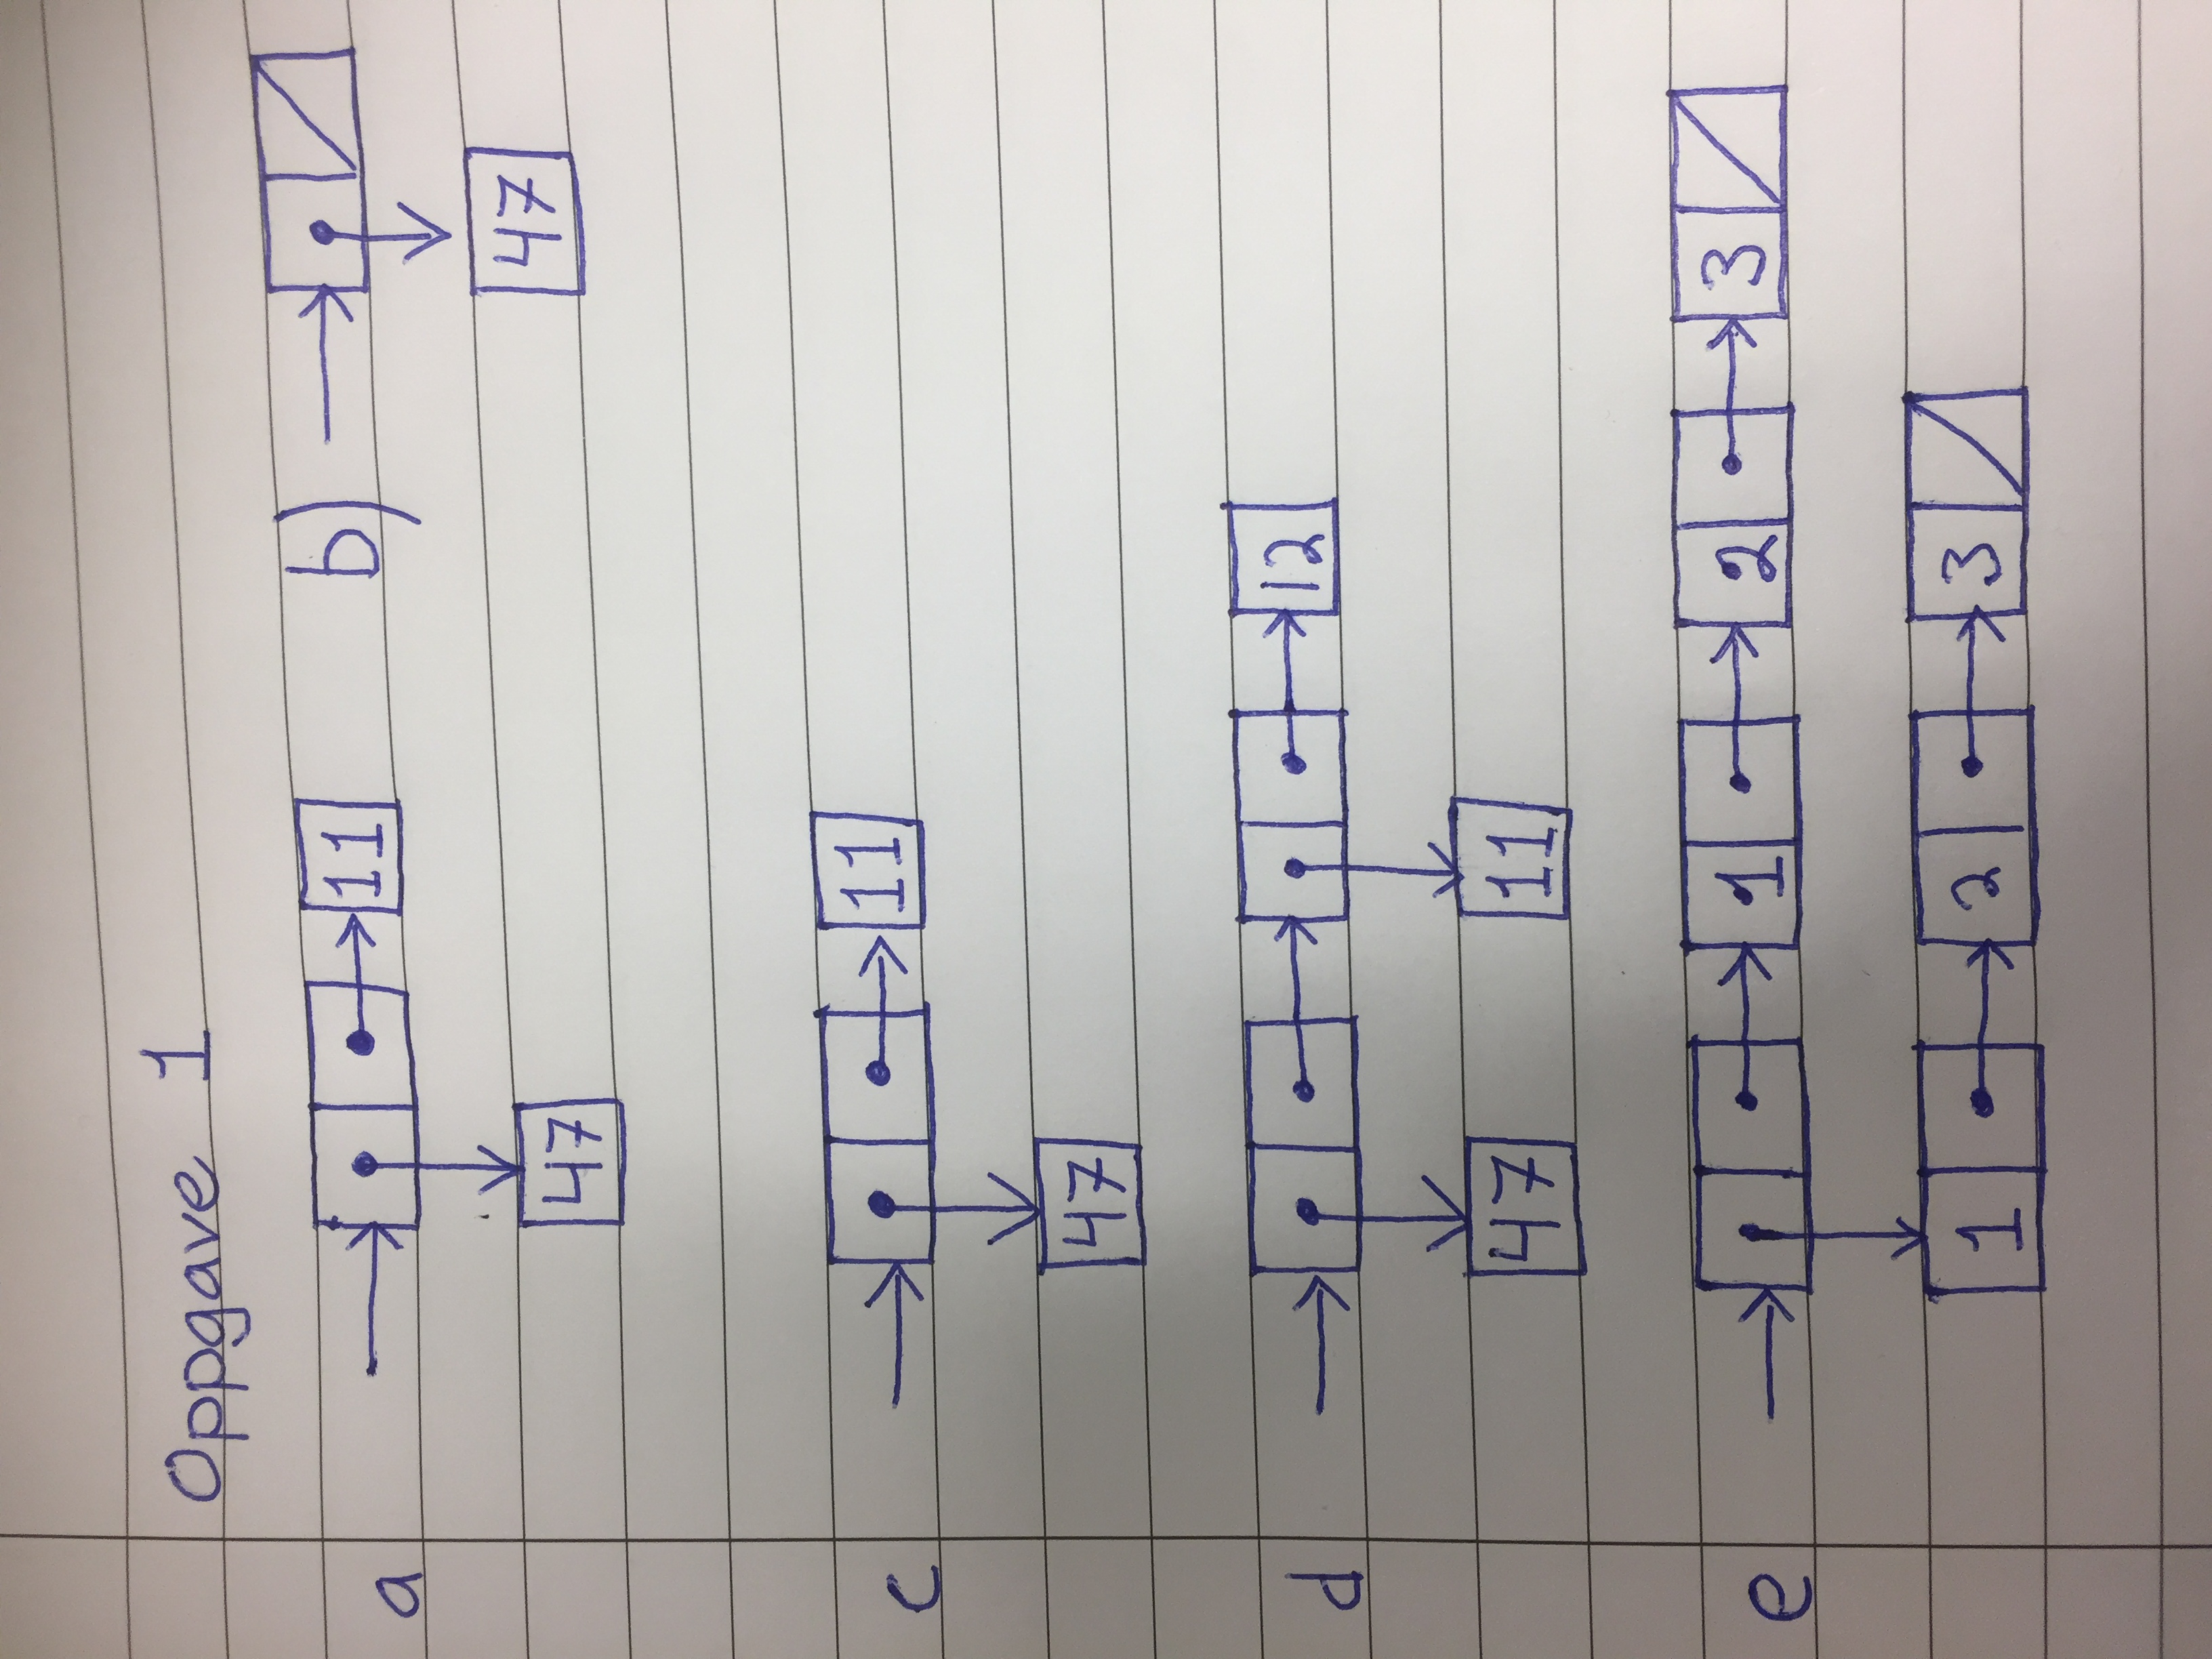 Oppgave 1
a 11 b)
47 47
c 11
47
d 12
47 11
e 1 2 3
1 2 3